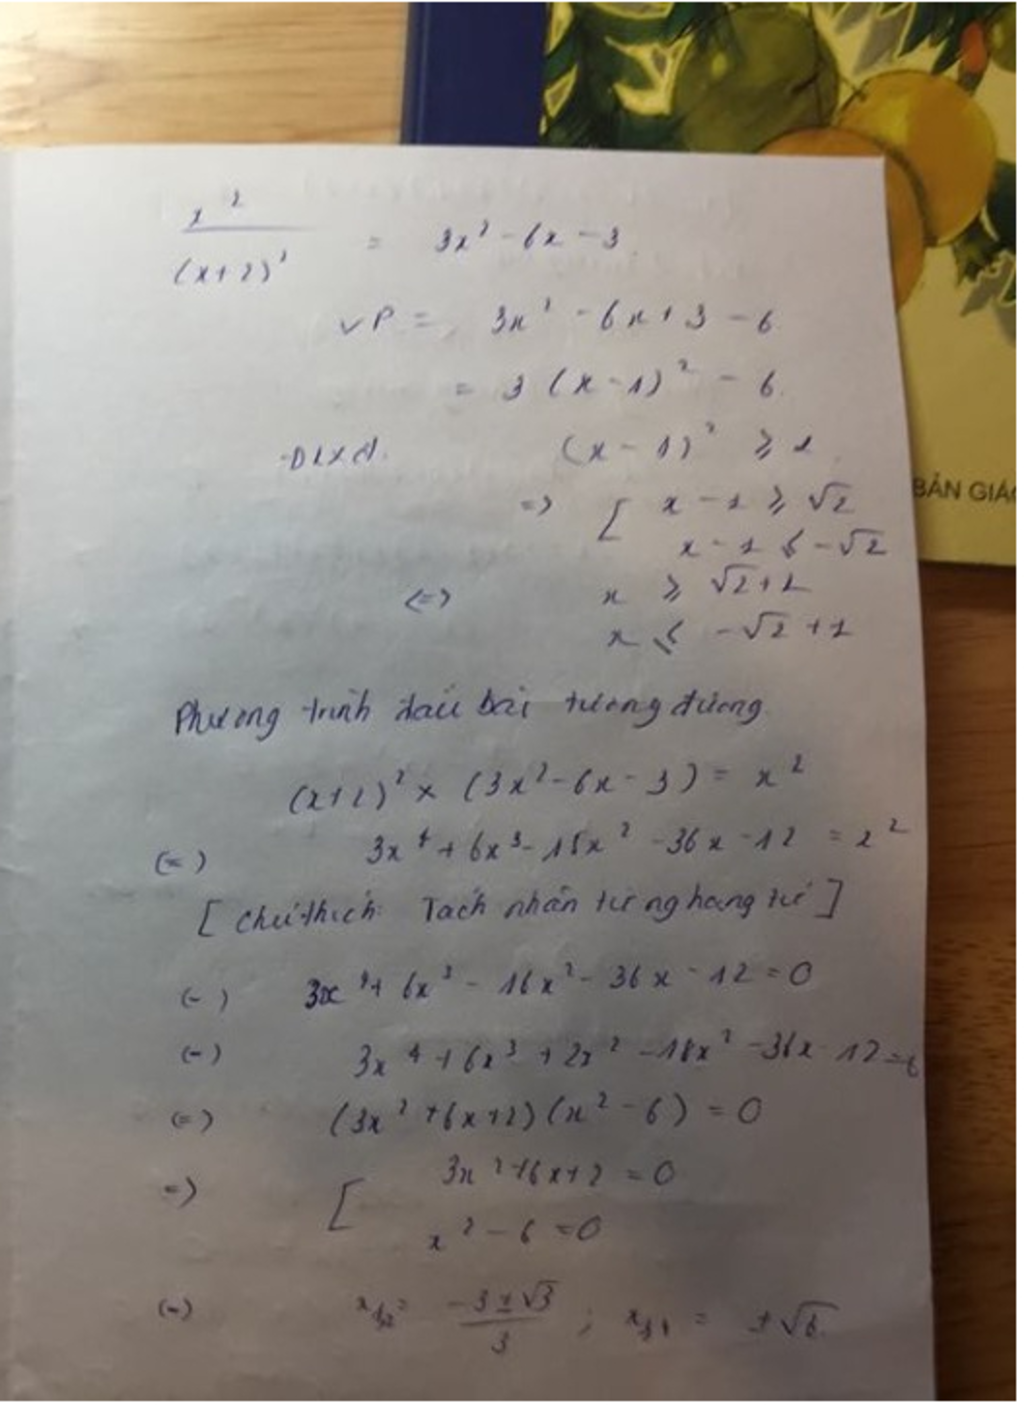 x²/(x+2)² = 3x² - 6x - 3
VP = 3x² - 6x + 3 - 6
= 3(x-1)² - 6
ĐKXĐ. (x-1)² ≥ 2
=> [ x - 1 ≥ √2
x - 1 ≤ -√2
BẢN GIÁO
<=> x ≥ √2+1
x ≤ -√2+1
Phương trình đầu bài tương đương
(x+2)² × (3x² - 6x - 3) = x²
(=) 3x⁴ + 6x³ - 15x² - 36x - 12 = x²
[ Chú thích: Tách nhân từng hạng tử ]
(=) 3x⁴ + 6x³ - 16x² - 36x - 12 = 0
(=) 3x⁴ + 6x³ + 2x² - 18x² - 36x - 12 = 0
(=) (3x² + 6x + 2)(x² - 6) = 0
=> [ 3x² + 6x + 2 = 0
x² - 6 = 0
(=) x₁,₂ = (-3 ± √3)/3 ; x₃,₄ = ±√6